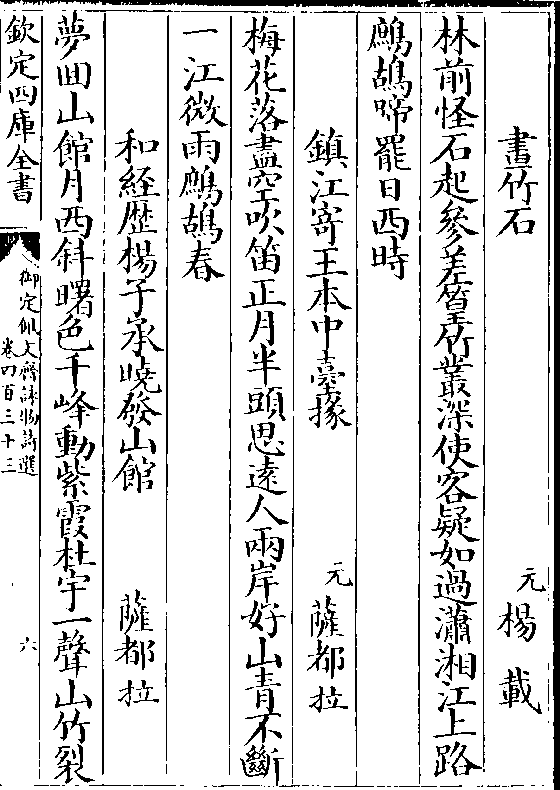 畫竹石
元楊載
林前怪石起參差篁竹叢深使客疑如過瀟湘江上路
鷓鴣啼罷日西時
鎮江寄王本中臺掾
元薩都拉
梅花落盡空吹笛正月半頭思遠人兩岸好山青不斷
一江微雨鷓鴣春
和經歷楊子承曉發山館
薩都拉
夢回山館月西斜曙色千峰動紫霞杜宇一聲山竹裂
欽定四庫全書
御定佩文齋詠物詩選
卷四百三十三
六